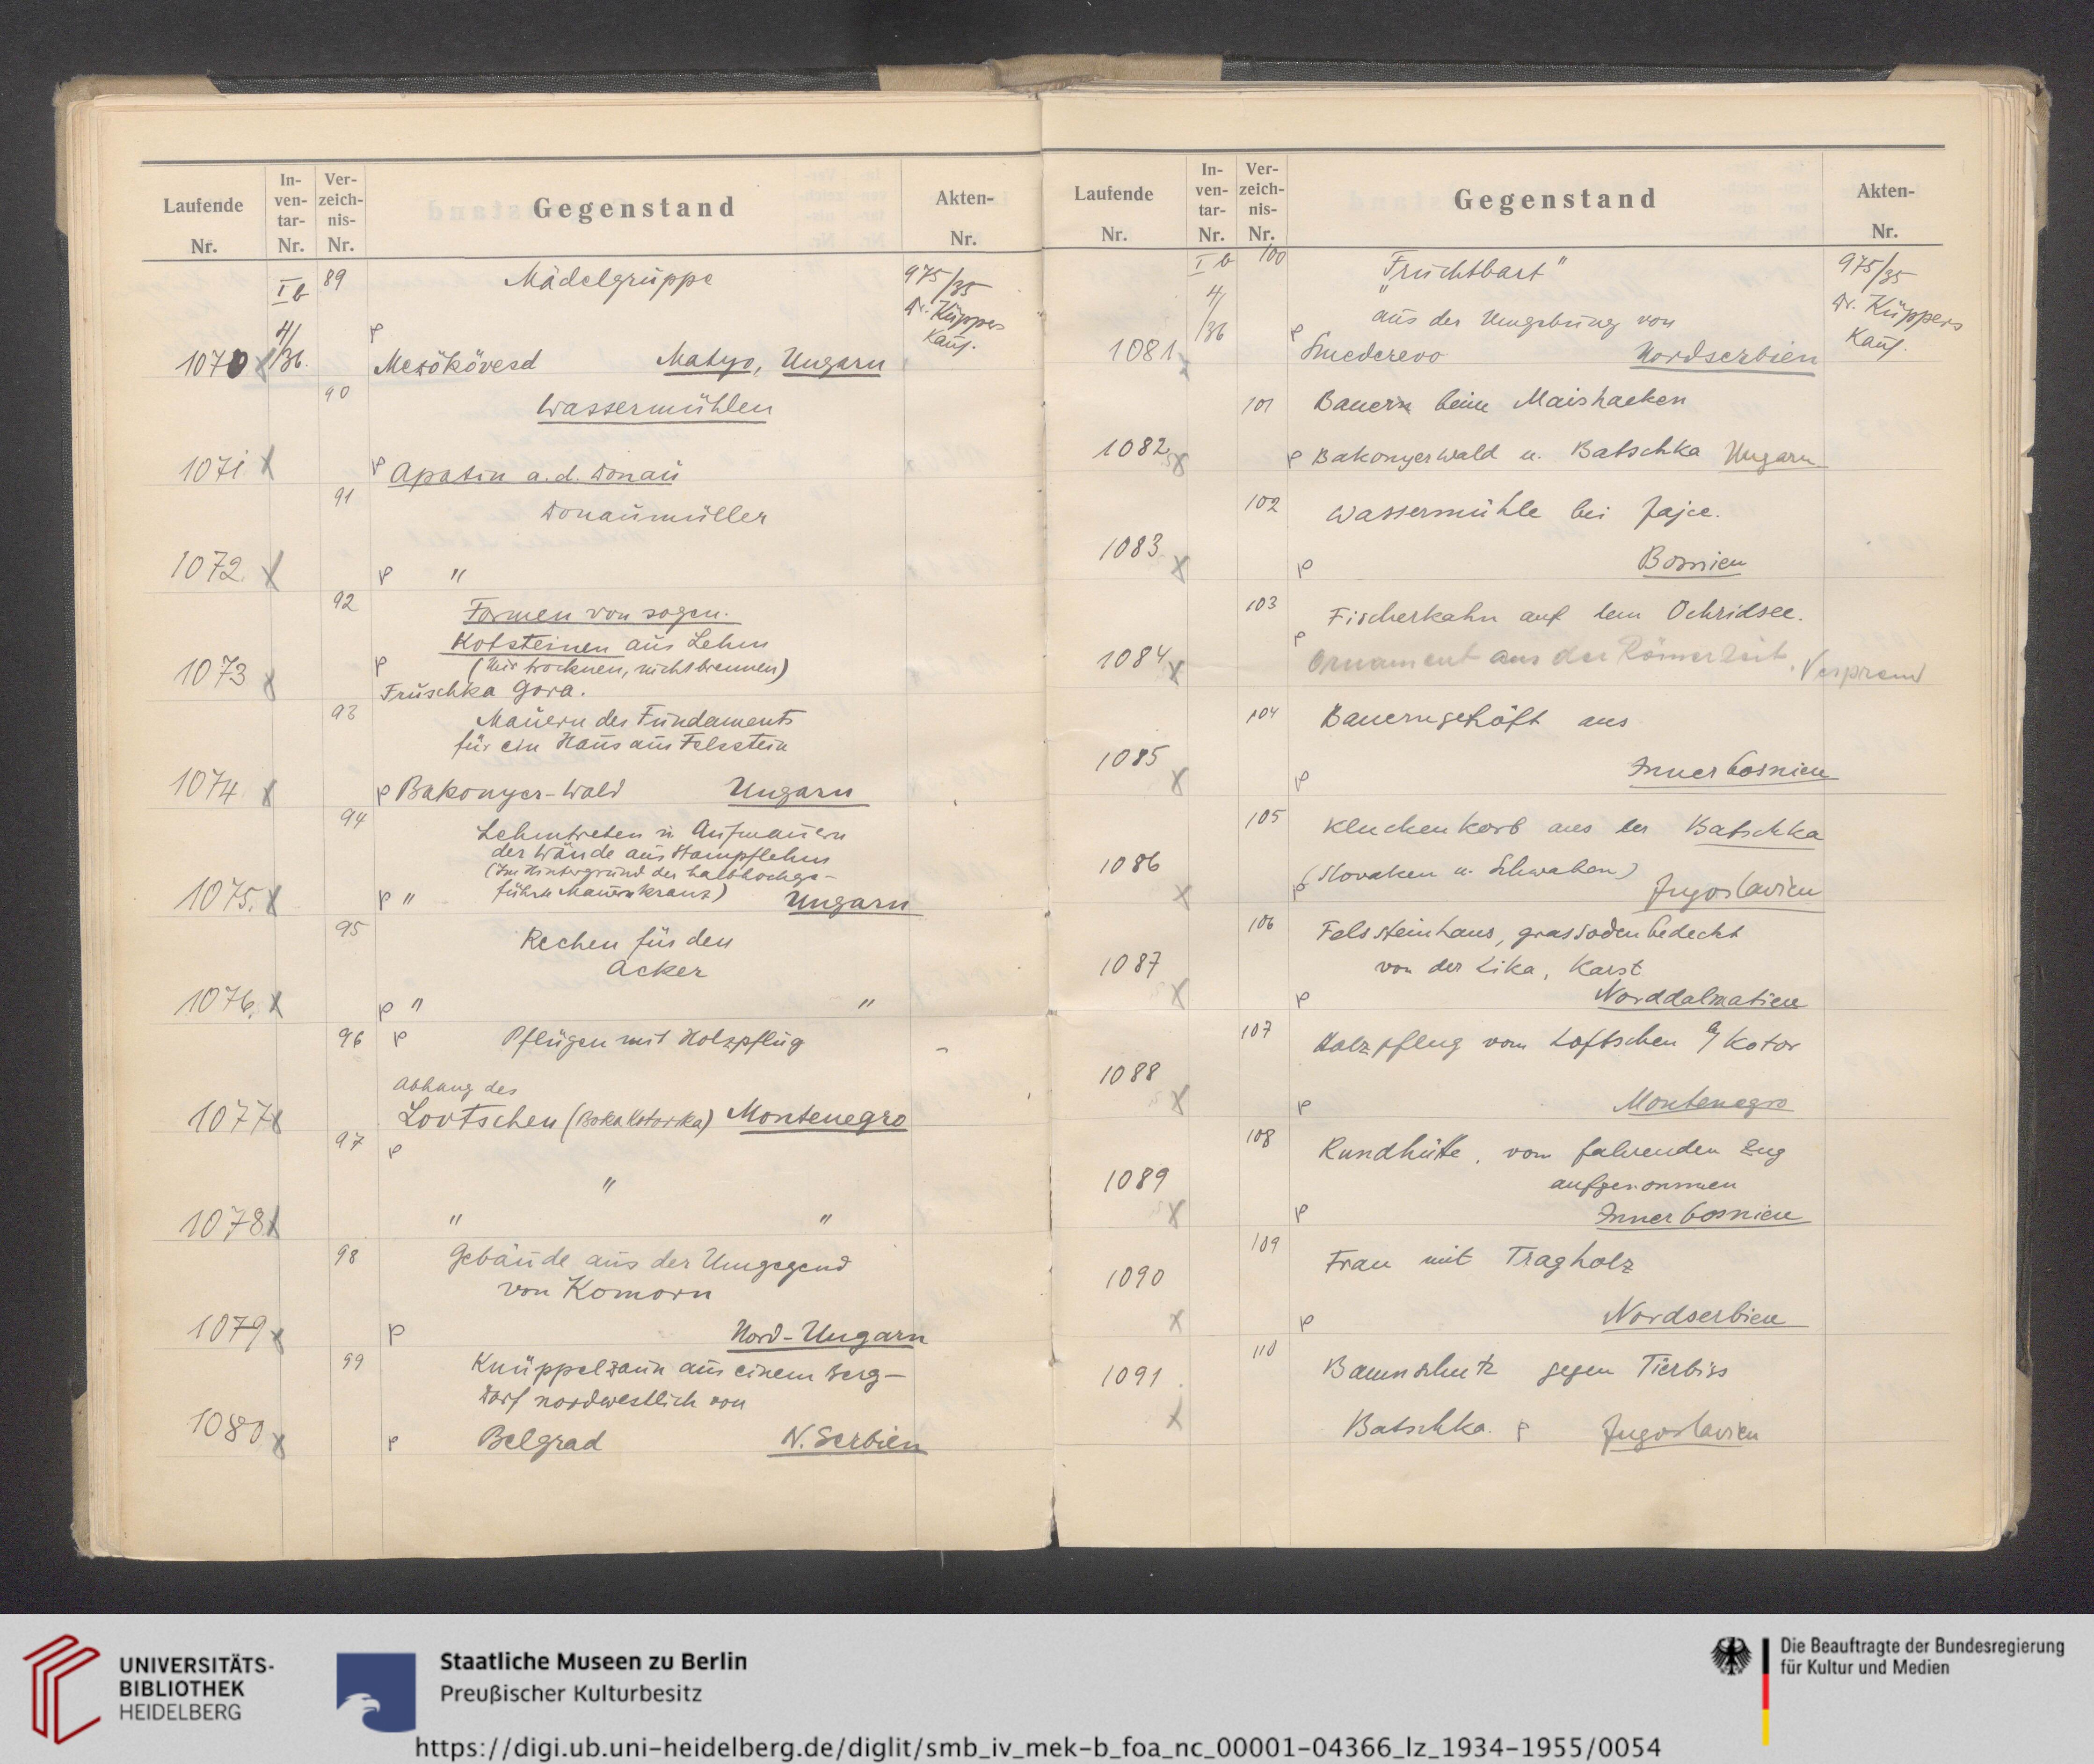 Laufende Nr.
In-ven-tar-Nr.
Ver-zeich-nis-Nr.
Gegenstand
Akten-Nr.
I b 89 Mädelgruppe 975/35
4/36. Dr. Küppers
p Kauf.
1070 x Mezökövesd Matyo, Ungarn
90 Wassermühlen
1071 x p Apatin a. d. Donau
91 Donaumüller
1072 x p "
92 Formen von sogen.
Kotsteinen aus Lehm
1073 x p (Nur trocknen, nicht brennen)
Fruschka Gora.
93 Mauern des Fundaments
für ein Haus aus Felsstein
1074 x p Bakonyer-Wald Ungarn
94 Lehmtreten u. Aufmauern
der Wände aus Stampflehm
(Im Hintergrund der halbhochge-
1075. x p " führte Mauernkranz) Ungarn
95 Rechen für den
Acker
1076. x p " "
96 p Pflügen mit Holzpflug
Abhang des
1077 x Lovtschen (Boka Kotorska) Montenegro
97 p
"
1078 x " "
98 Gebäude aus der Umgegend
von Komorn
1079 x p Nord-Ungarn
99 Knüppelzaun aus einem Berg-
dorf nordwestlich von
1080 x p Belgrad N. Serbien
Laufende Nr.
In-ven-tar-Nr.
Ver-zeich-nis-Nr.
Gegenstand
Akten-Nr.
I b 100 „Fruchtbart" 975/35
4/36 aus der Umgebung von Dr. Küppers
1081 x p Smederevo Nordserbien Kauf.
101 Bauern beim Maishacken
1082 x p Bakonyerwald u. Batschka Ungarn
102 Wassermühle bei Jajce.
1083 x p Bosnien
103 Fischerkahn auf dem Ochridsee.
1084 x p Ornament aus der Römerzeit. Vesprem
104 Bauerngehöft aus
1085 x p Innerbosnien
105 Kluckenkorb aus der Batschka
1086 x p (Slovaken u. Schwaben) Jugoslavien
106 Felssteinhaus, grassodenbedeckt
1087 von der Lika, Karst
x p Norddalmatien
107 Holzpflug vom Loftschen b/ Kotor
1088 x p Montenegro
108 Rundhütte, vom fahrenden Zug
1089 aufgenommen
x p Innerbosnien
109 Frau mit Tragholz
1090 x p Nordserbien
110 Baumschutz gegen Tierbiss
1091 x Batschka. p Jugoslavien
UNIVERSITÄTS-
BIBLIOTHEK
HEIDELBERG
Staatliche Museen zu Berlin
Preußischer Kulturbesitz
Die Beauftragte der Bundesregierung
für Kultur und Medien
https://digi.ub.uni-heidelberg.de/diglit/smb_iv_mek-b_foa_nc_00001-04366_lz_1934-1955/0054